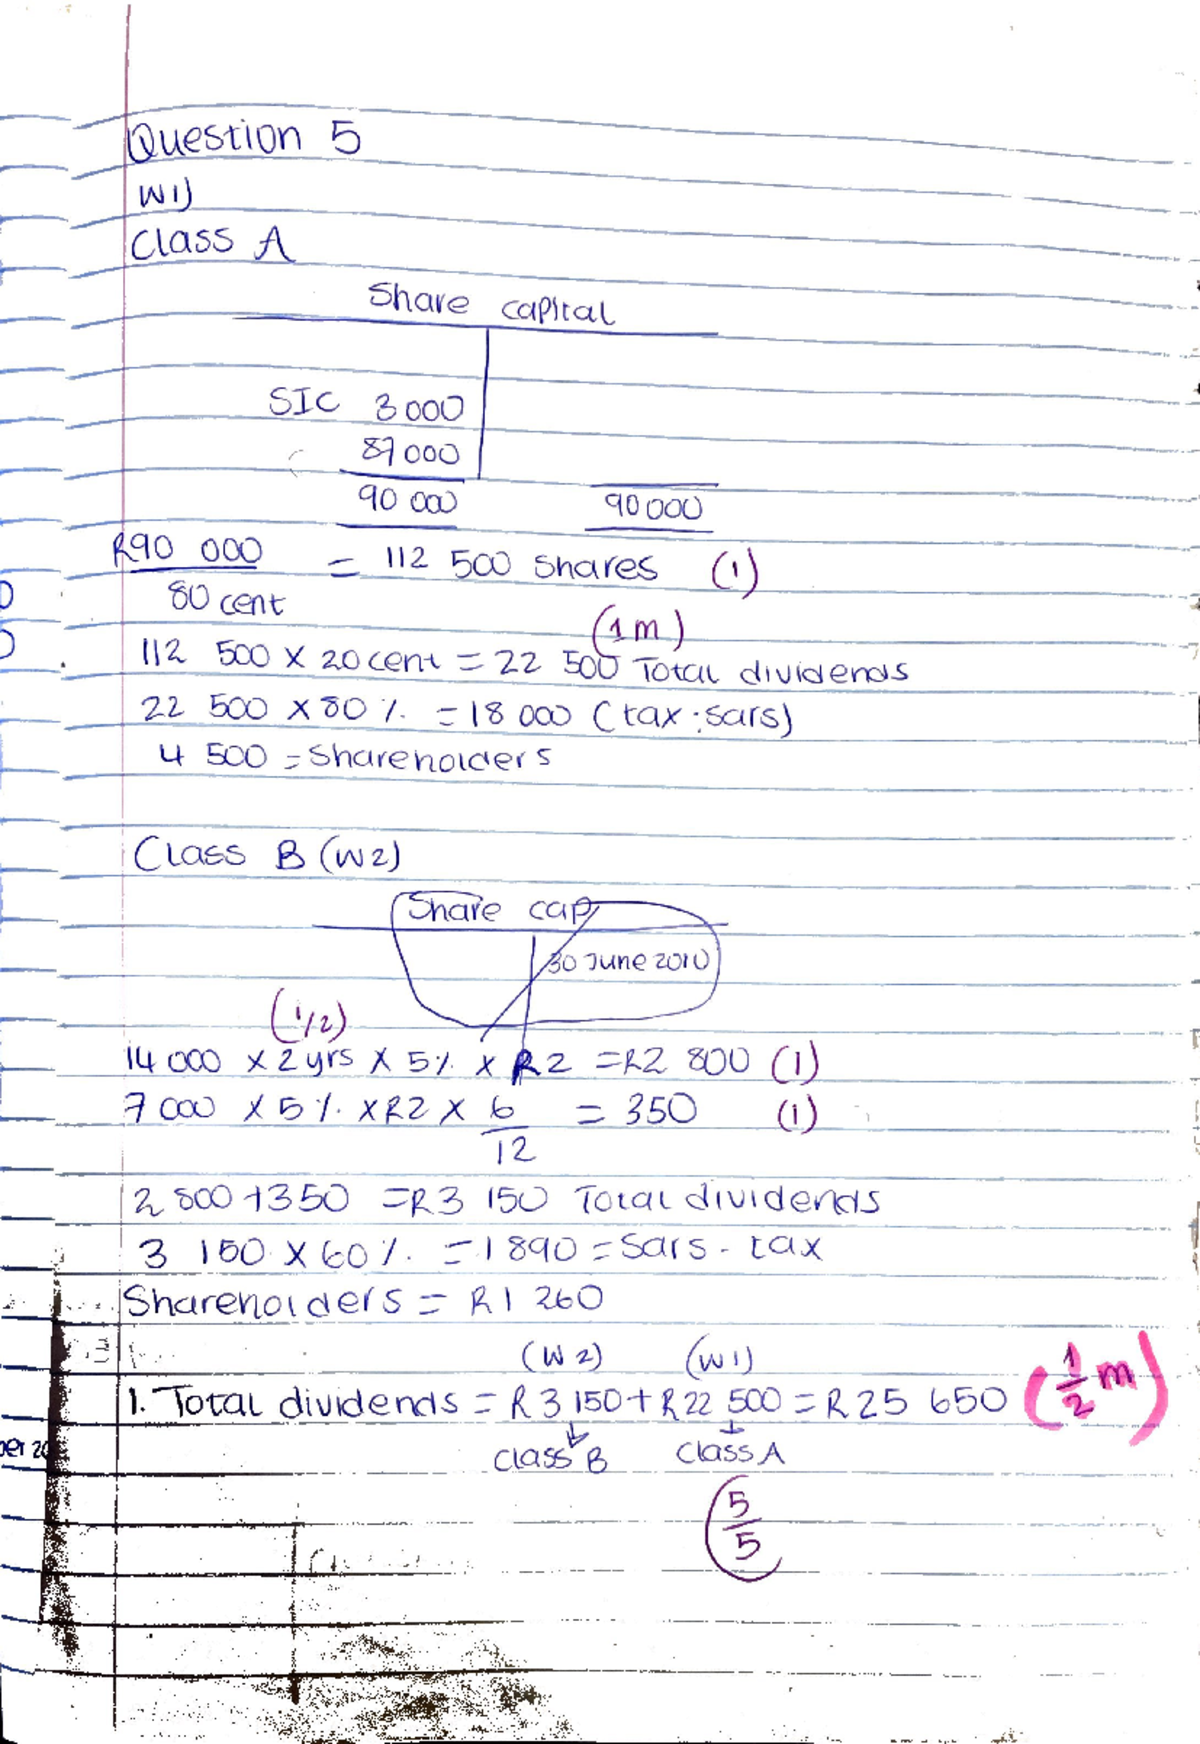 Question 5
W1)
Class A
Share capital
SIC 3 000
87 000
90 000 90 000
R90 000 = 112 500 shares (1)
80 cent
(1m)
112 500 x 20 cent = 22 500 Total dividends
22 500 x 80 % = 18 000 (tax : sars)
4 500 = Shareholders
Class B (W2)
Share cap
30 June 2010
(1/2)
14 000 x 2 yrs x 5% x R2 = R2 800 (1)
7 000 x 5 % x R2 x 6 = 350 (1)
12
2 800 + 350 = R3 150 Total dividends
3 150 x 60 % = 1 890 = Sars - tax
Shareholders = R1 260
(W2) (W1)
1. Total dividends = R3 150 + R22 500 = R25 650 (1/2 m)
Class B Class A
5
5